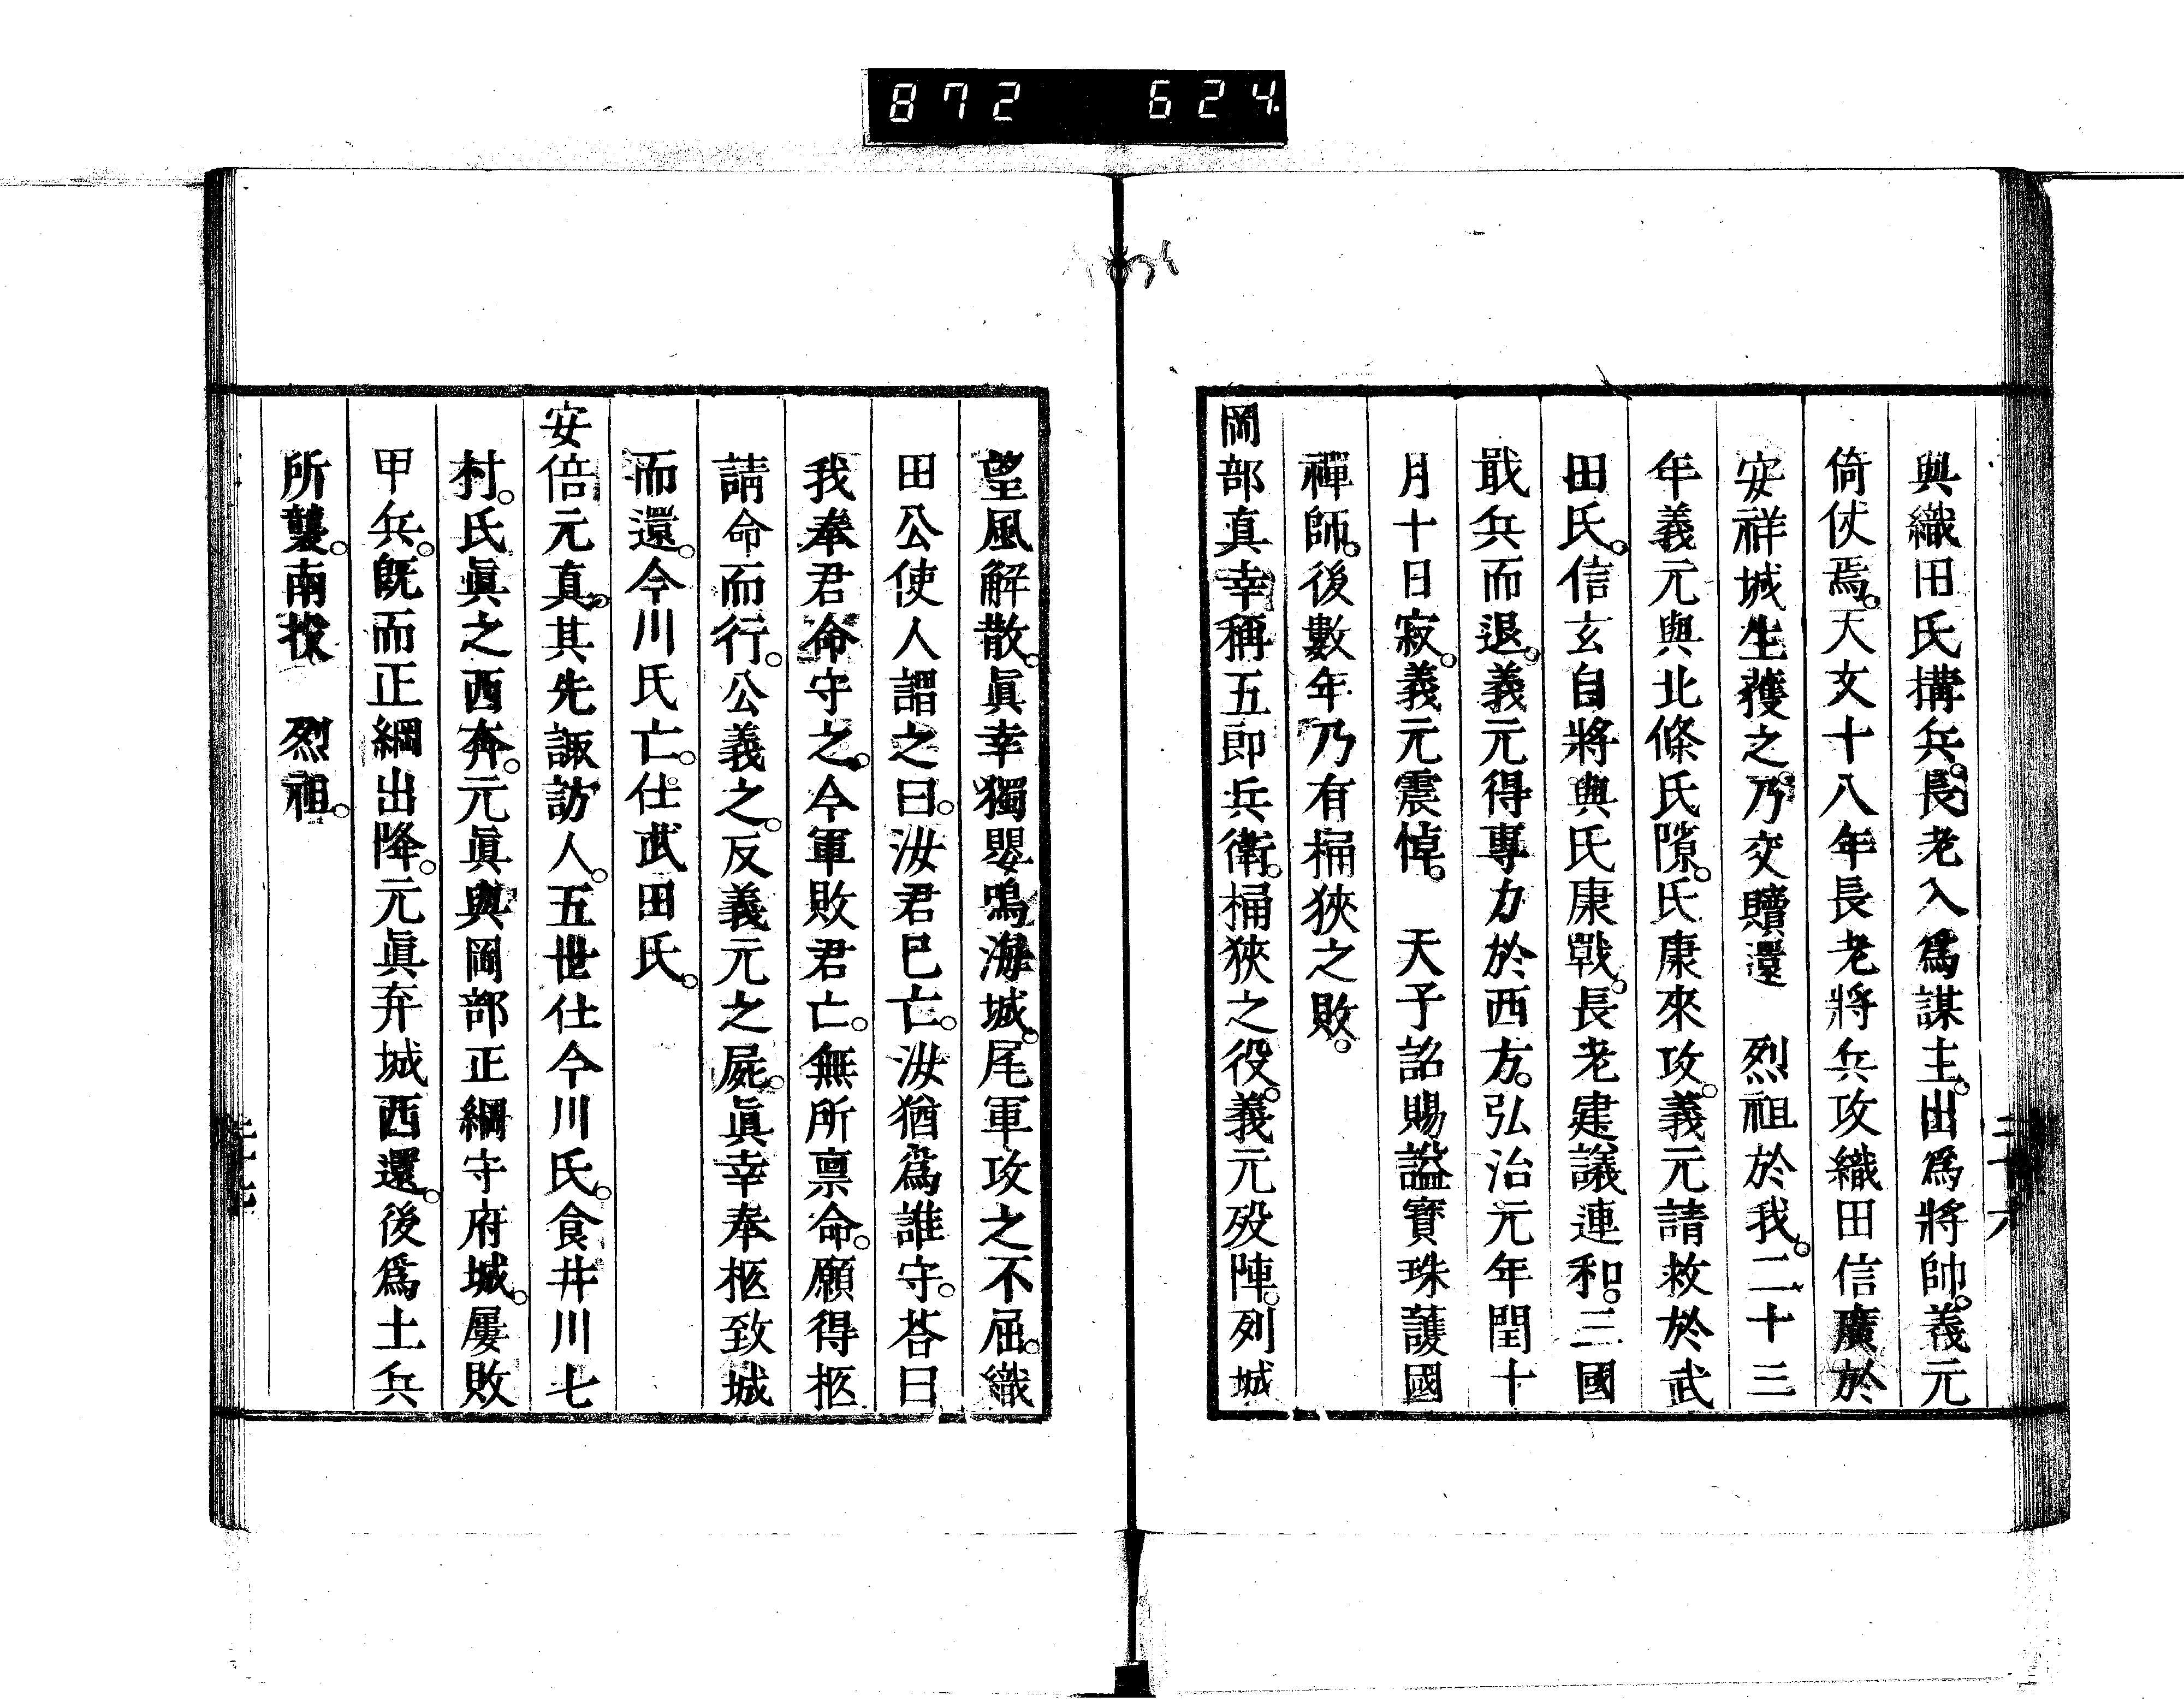 872 624
與織田氏搆兵。長老入爲謀主。出爲將帥。義元
倚仗焉。天文十八年長老將兵攻織田信廣於
安祥城生獲之。乃交贖還　烈祖於我。二十三
年義元與北條氏隙。氏康來攻。義元請救於武
田氏。信玄自將與氏康戰。長老建議連和。三國
戢兵而退。義元得專力於西方。弘治元年閏十
月十日寂。義元震悼。　天子詔賜謚寳珠護國
禪師。後數年乃有桶狹之敗。
岡部真幸稱五郎兵衛。桶狹之役。義元歿陣。列城
望風解散。眞幸獨嬰鳴海城。尾軍攻之不屈。織
田公使人謂之曰。汝君巳亡。汝猶爲誰守。荅曰
我奉君命守之。今軍敗君亡。無所禀命。願得柩
請命而行。公義之。反義元之屍。眞幸奉柩致城
而還。今川氏亡。仕武田氏。
安倍元真。其先諏訪人。五世仕今川氏。食井川七
村。氏眞之西奔。元眞與岡部正綱守府城。屢敗
甲兵。旣而正綱出降。元眞弃城西還。後爲土兵
所襲。南投　烈祖。